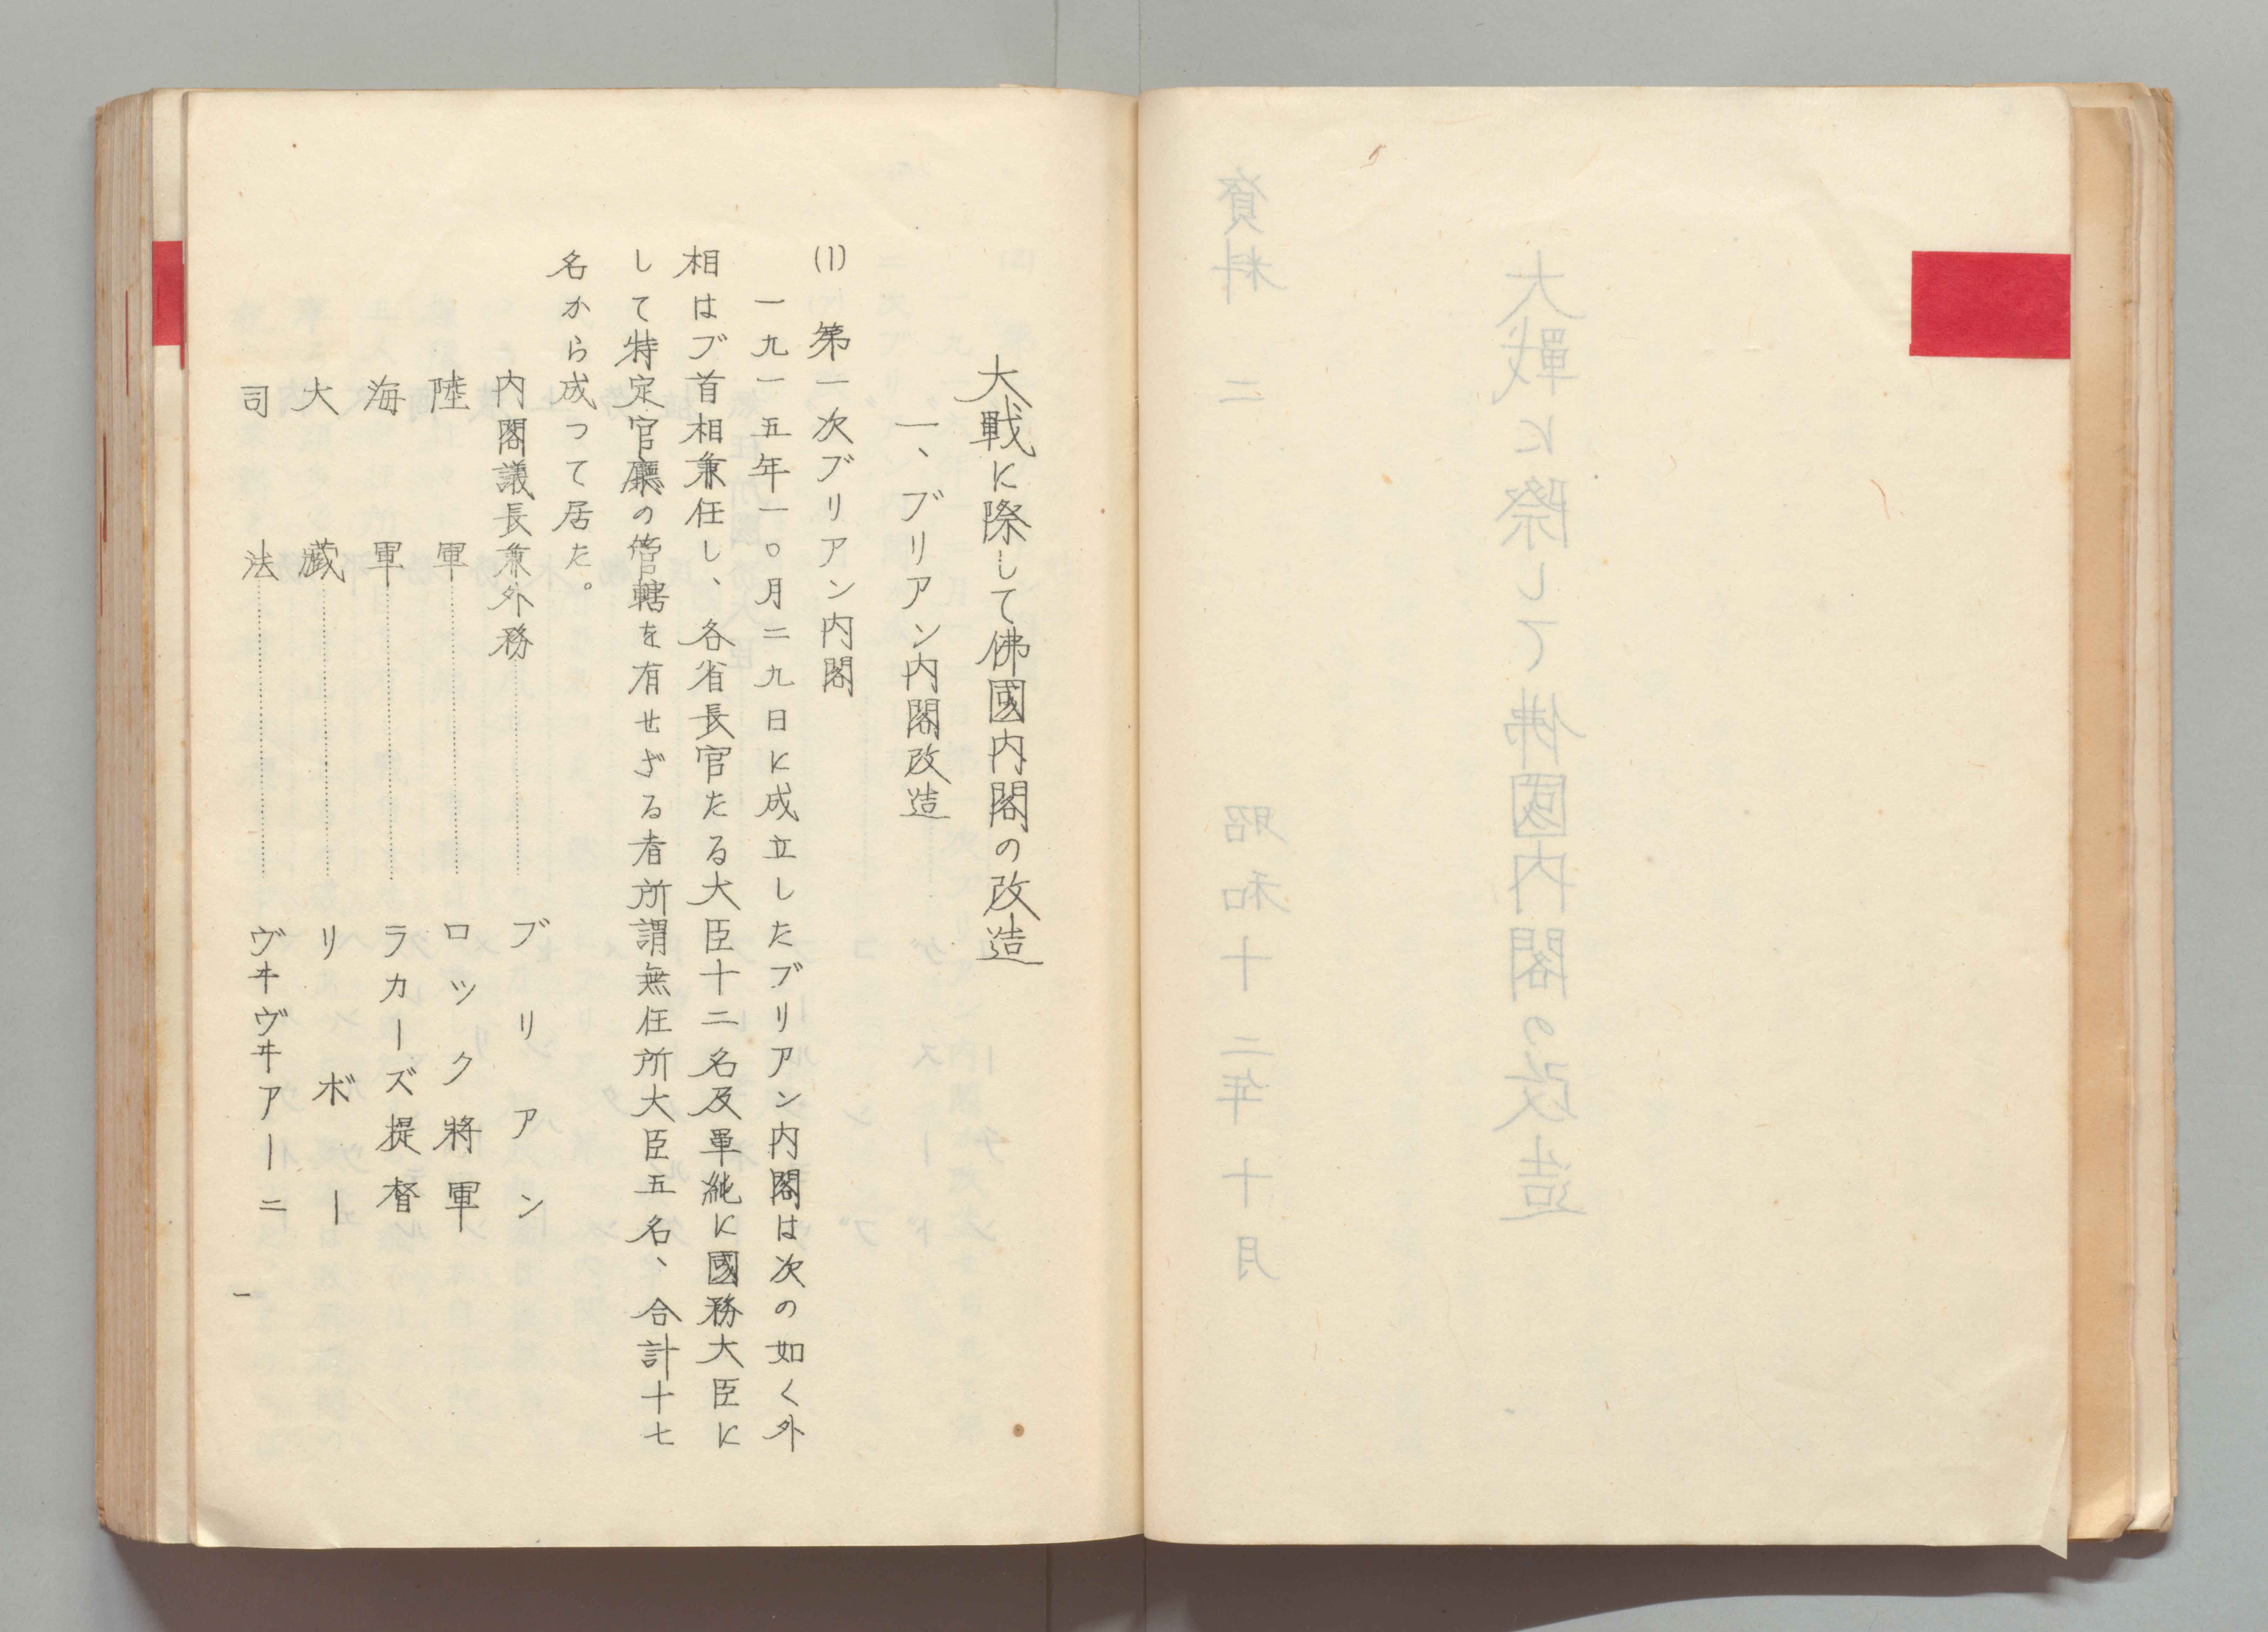 資料二
大戰に際して佛國内閣の改造
昭和十二年十月
大戰に際して佛國内閣の改造
一、ブリアン内閣改造
(1) 第一次ブリアン内閣
一九一五年一〇月二九日に成立したブリアン内閣は次の如く外
相はブ首相兼任し、各省長官たる大臣十二名及單純に國務大臣に
して特定官廳の管轄を有せざる者所謂無任所大臣五名、合計十七
名から成つて居た。
内閣議長兼外務……………ブリアン
陸軍……………ロック將軍
海軍……………ラカーズ提督
大藏……………リボー
司法……………ヴヰヴヰアーニ
一